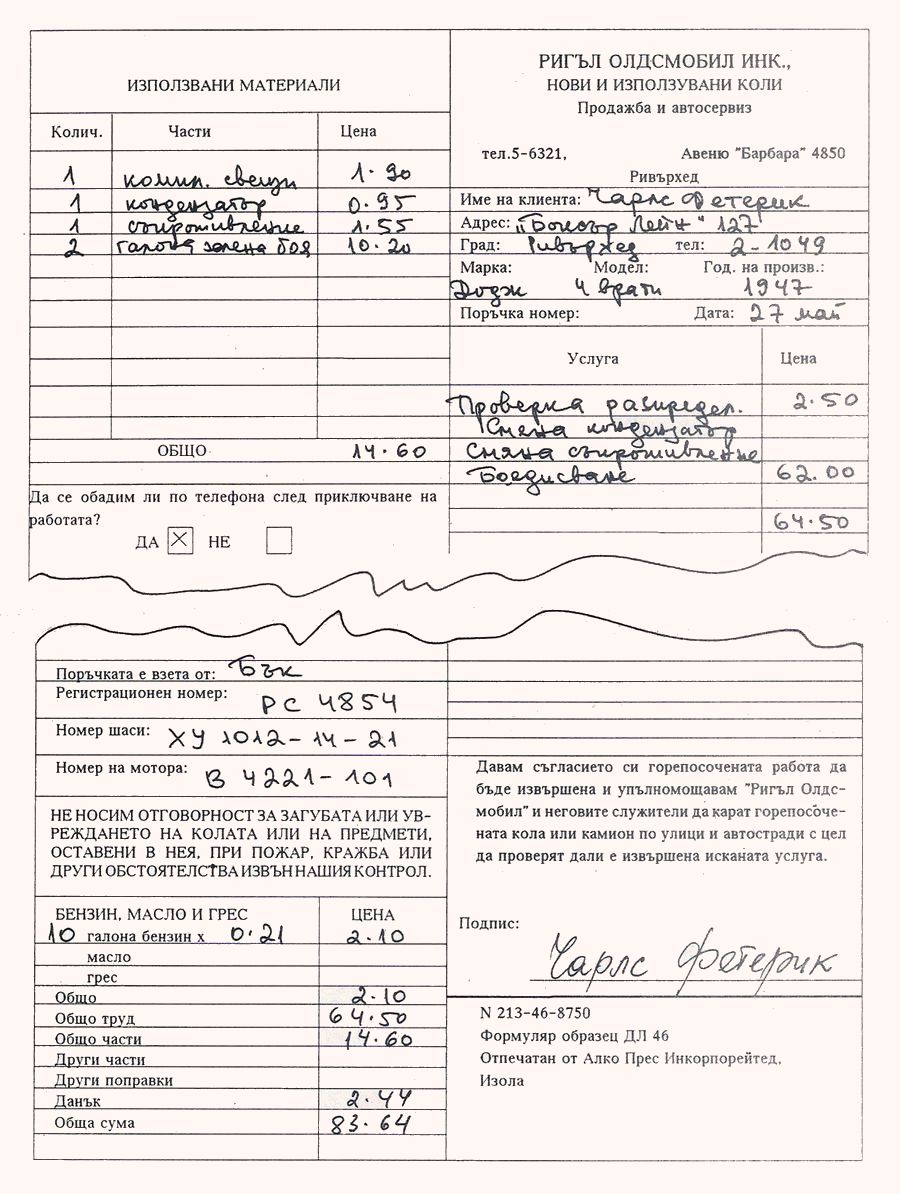 ИЗПОЛЗВАНИ МАТЕРИАЛИ
Колич. Части Цена
1 компл. свещи 1.90
1 кондензатор 0.95
1 съпротивление 1.55
2 галона зелена боя 10.20
ОБЩО 14.60
Да се обадим ли по телефона след приключване на
работата?
ДА X НЕ
РИГЪЛ ОЛДСМОБИЛ ИНК.,
НОВИ И ИЗПОЛЗУВАНИ КОЛИ
Продажба и автосервиз
тел.5-6321, Авеню "Барбара" 4850
Ривърхед
Име на клиента: Чарлс Фетерик
Адрес: "Боксър Лейн" 127
Град: Ривърхед тел: 2-1049
Марка: Модел: Год. на произв.:
Додж 4 врати 1947
Поръчка номер: Дата: 27 май
Услуга Цена
Проверка разпредел. 2.50
Смяна кондензатор
Смяна съпротивление
Боедисване 62.00
64.50
Поръчката е взета от: Бък
Регистрационен номер: РС 4854
Номер шаси: ХУ 1012-14-21
Номер на мотора: В 4221-101
НЕ НОСИМ ОТГОВОРНОСТ ЗА ЗАГУБАТА ИЛИ УВ-
РЕЖДАНЕТО НА КОЛАТА ИЛИ НА ПРЕДМЕТИ,
ОСТАВЕНИ В НЕЯ, ПРИ ПОЖАР, КРАЖБА ИЛИ
ДРУГИ ОБСТОЯТЕЛСТВА ИЗВЪН НАШИЯ КОНТРОЛ.
БЕНЗИН, МАСЛО И ГРЕС ЦЕНА
10 галона бензин х 0.21 2.10
масло
грес
Общо 2.10
Общо труд 64.50
Общо части 14.60
Други части
Други поправки
Данък 2.44
Обща сума 83.64
Давам съгласието си горепосочената работа да
бъде извършена и упълномощавам "Ригъл Олдс-
мобил" и неговите служители да карат горепосоче-
ната кола или камион по улици и автостради с цел
да проверят дали е извършена исканата услуга.
Подпис:
Чарлс Фетерик
N 213-46-8750
Формуляр образец ДЛ 46
Отпечатан от Алко Прес Инкорпорейтед,
Изола